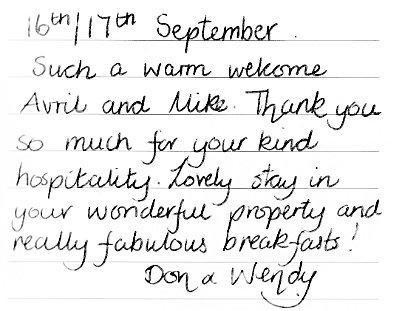 16th/17th September.
Such a warm welcome
Avril and Mike. Thank you
so much for your kind
hospitality. Lovely stay in
your wonderful property and
really fabulous breakfasts!
Don & Wendy